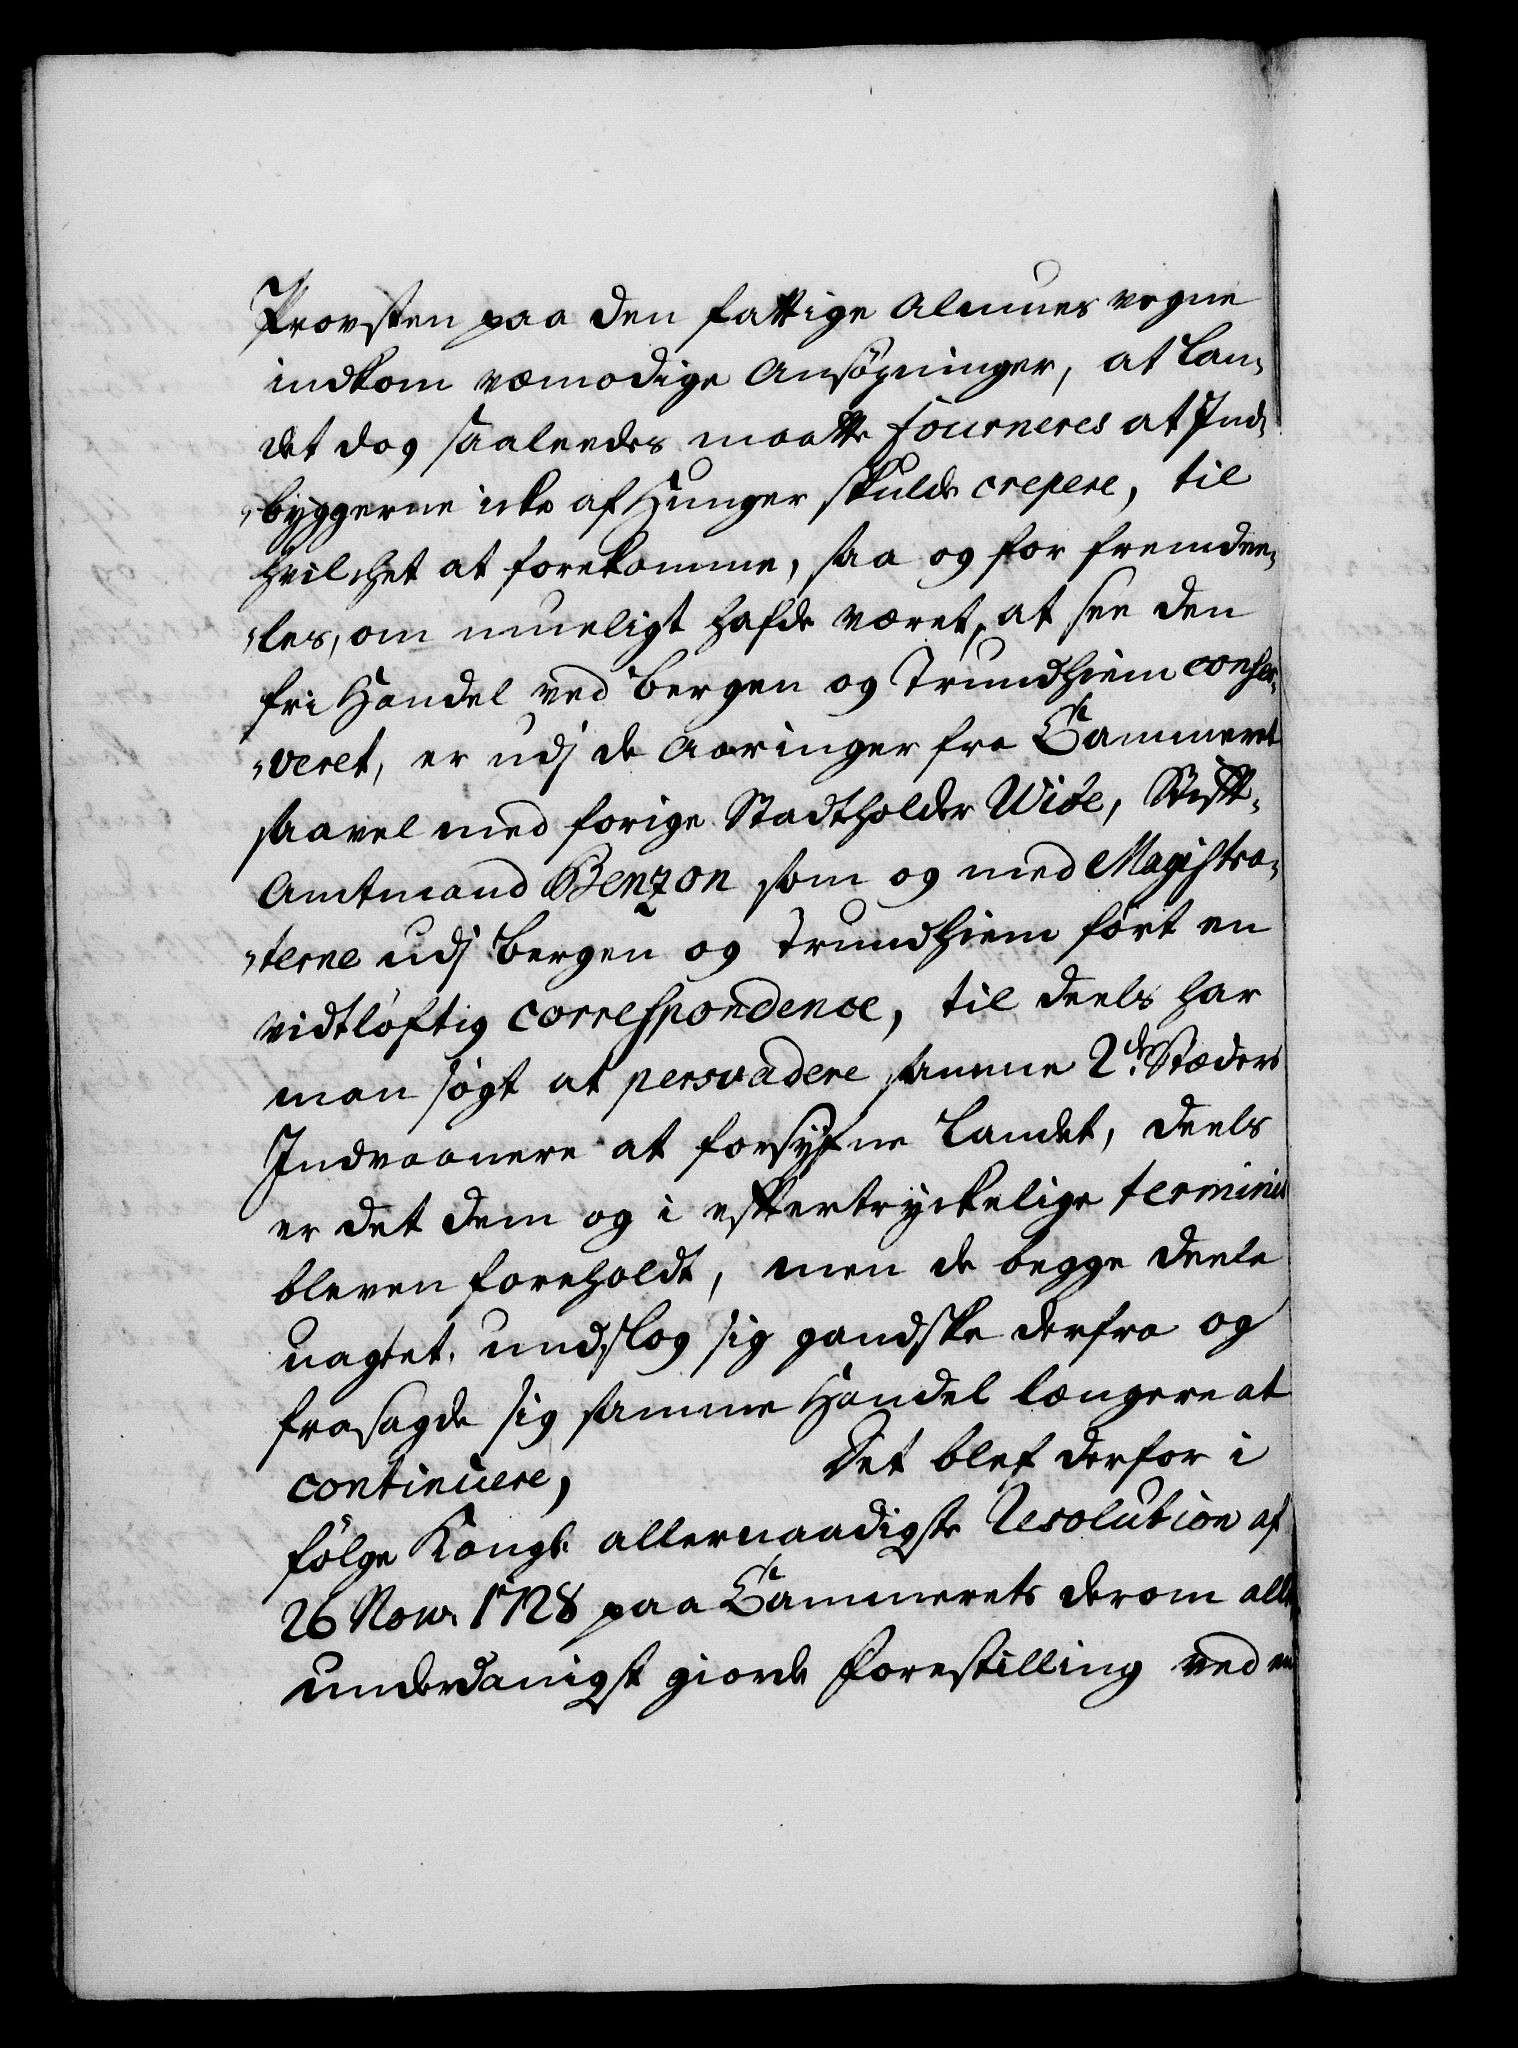 Provsten paa den fattige Almues vegne
indkom væmodige Ansøgninger, at Lan-
det dog saaleedes maatte fourneres at Ind-
"byggerne icke af Hunger skulde crepere, til
hvilchet at forekomme, saa og for fremdee-
"les, om mueligt hafde været, at see den
fri Handel ved Bergen og Trundhiem conser-
"veret, er udj de Aaringer fra Cammeret
saavel med forige Stadtholder Wibe, Stift-
Amtmand Benzon som og med Magistra-
"terne udj Bergen og Trundhiem ført en
vidtløftig correspondence, til deels har
man søgt at persvadere samme 2de Stæders
Indvaanere at forsyfne Landet, deels
er det dem og i eftertryckelige terminis
bleven foreholdt, men de begge deele
uagtet, undslog sig gandske derfra og
frasagde sig samme Handel længere at
continuere, Det blef derfor i
følge Kongl. allernaadigste Resolution af
26 Novr. 1728 paa Cammerets derom aller
underdanigst giorde Forestilling ved en